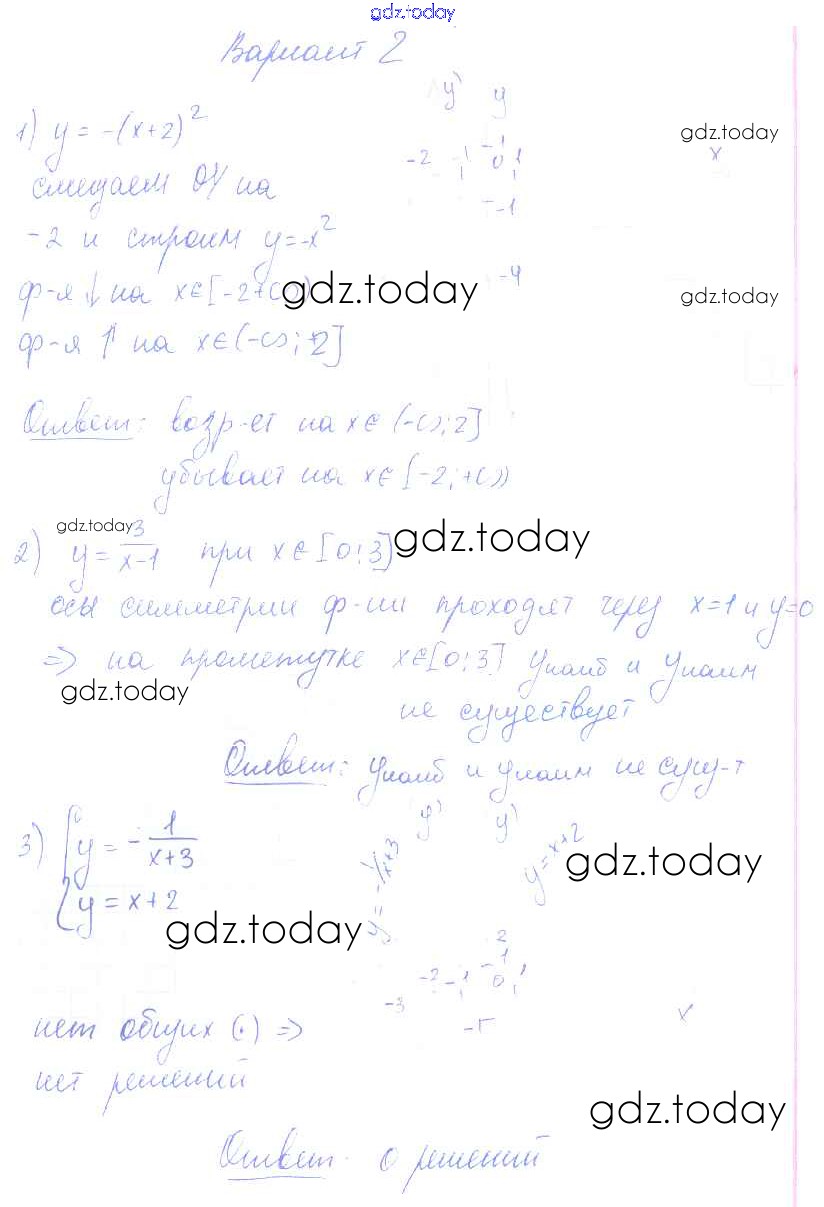 gdz.today
Вариант 2
1) y = -(x+2)²
смещаем OY на
-2 и строим y=-x²
ф-я ↓ на x∈[-2+∞)
ф-я ↑ на x∈(-∞;-2]
y' y
-2 -1 -1 0 1 x
-1
-4
gdz.today
gdz.today
gdz.today
Ответ: возр-ет на x∈(-∞;2]
убывает на x∈[-2;+∞)
gdz.today
2) y = 3/(x-1) при x∈[0;3]
gdz.today
осы симметрии ф-ии проходят через x=1 и y=0
=> на прометутке x∈[0;3] yнаиб и yнаим
gdz.today
не существует
Ответ: yнаиб и yнаим не сущ-т
3) { y = -1/(x+3)
y = x+2
y' y'
y = -1/x+3
y = x+2
gdz.today
gdz.today
2
-3 -2 -1 1 0 1
-1
x
нет общих (·) =>
нет решений
gdz.today
Ответ: 0 решений